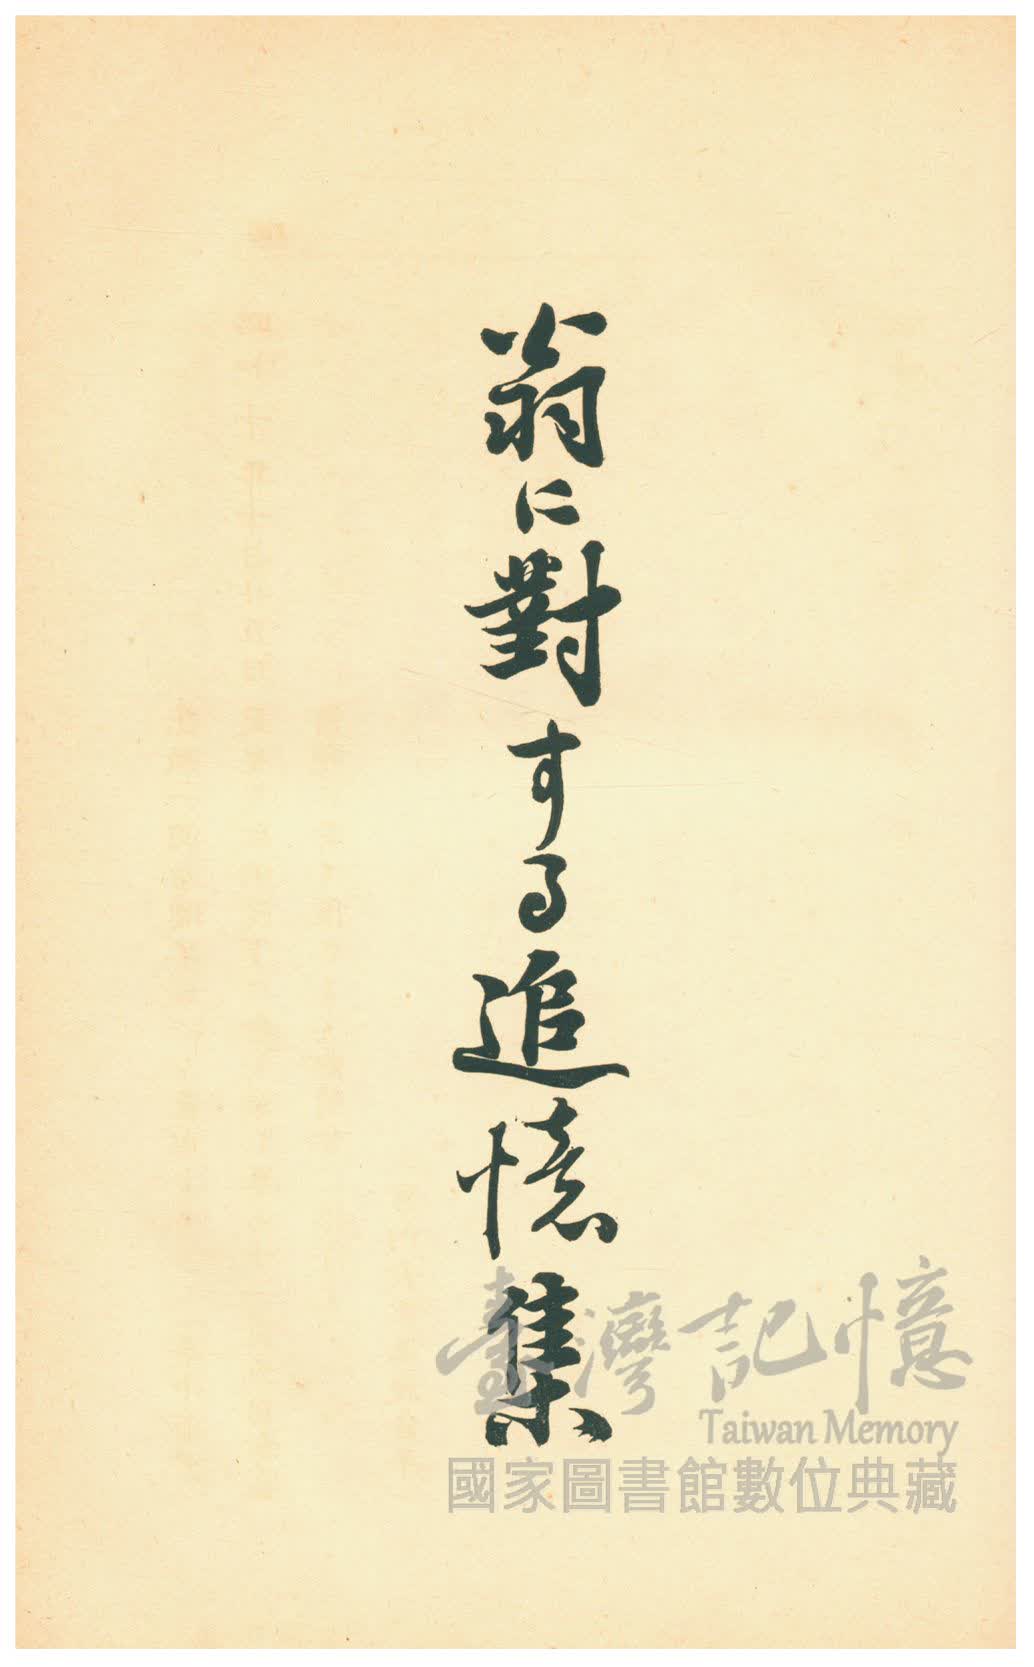 翁に對する追憶集
臺灣記憶
Taiwan Memory
國家圖書館數位典藏